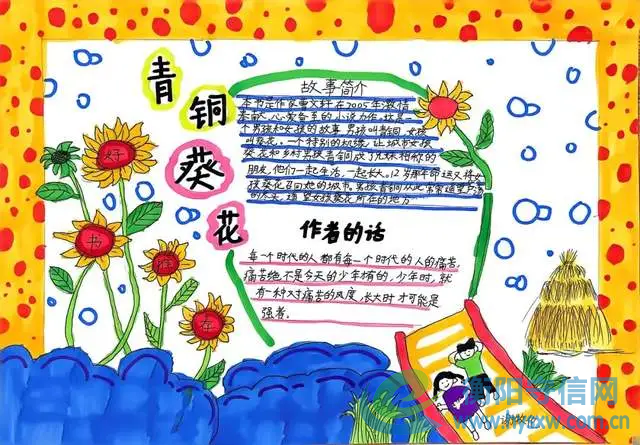 青
铜
葵
花
故事简介
本书是作家曹文轩在2005年激情
奉献、心爱备至的小说力作。这是一
个男孩和女孩的故事。男孩叫青铜,女孩
叫葵花。一个特别的机缘,让城市女孩
葵花和乡村男孩青铜成了兄妹相称的
朋友,他们一起生活,一起长大。12岁那年命运又将女
孩葵花召回她的城市。男孩青铜从此常常遥望芦荡
的尽头,遥望女孩葵花所在的地方。
好
书
作者的话
每一个时代的人都有每一个时代的人的痛苦,
痛苦绝不是今天的少年有的,少年时,就
有一种对痛苦的风度,长大时才可能是
强者。